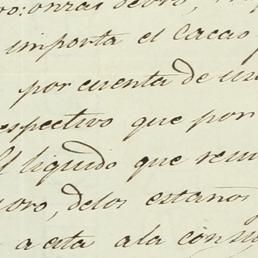 o: onzas de oro,
importa el Cacao
por cuenta de us
espectivo que por
El liquido que rem
oro, delos estaños
acta ala consig